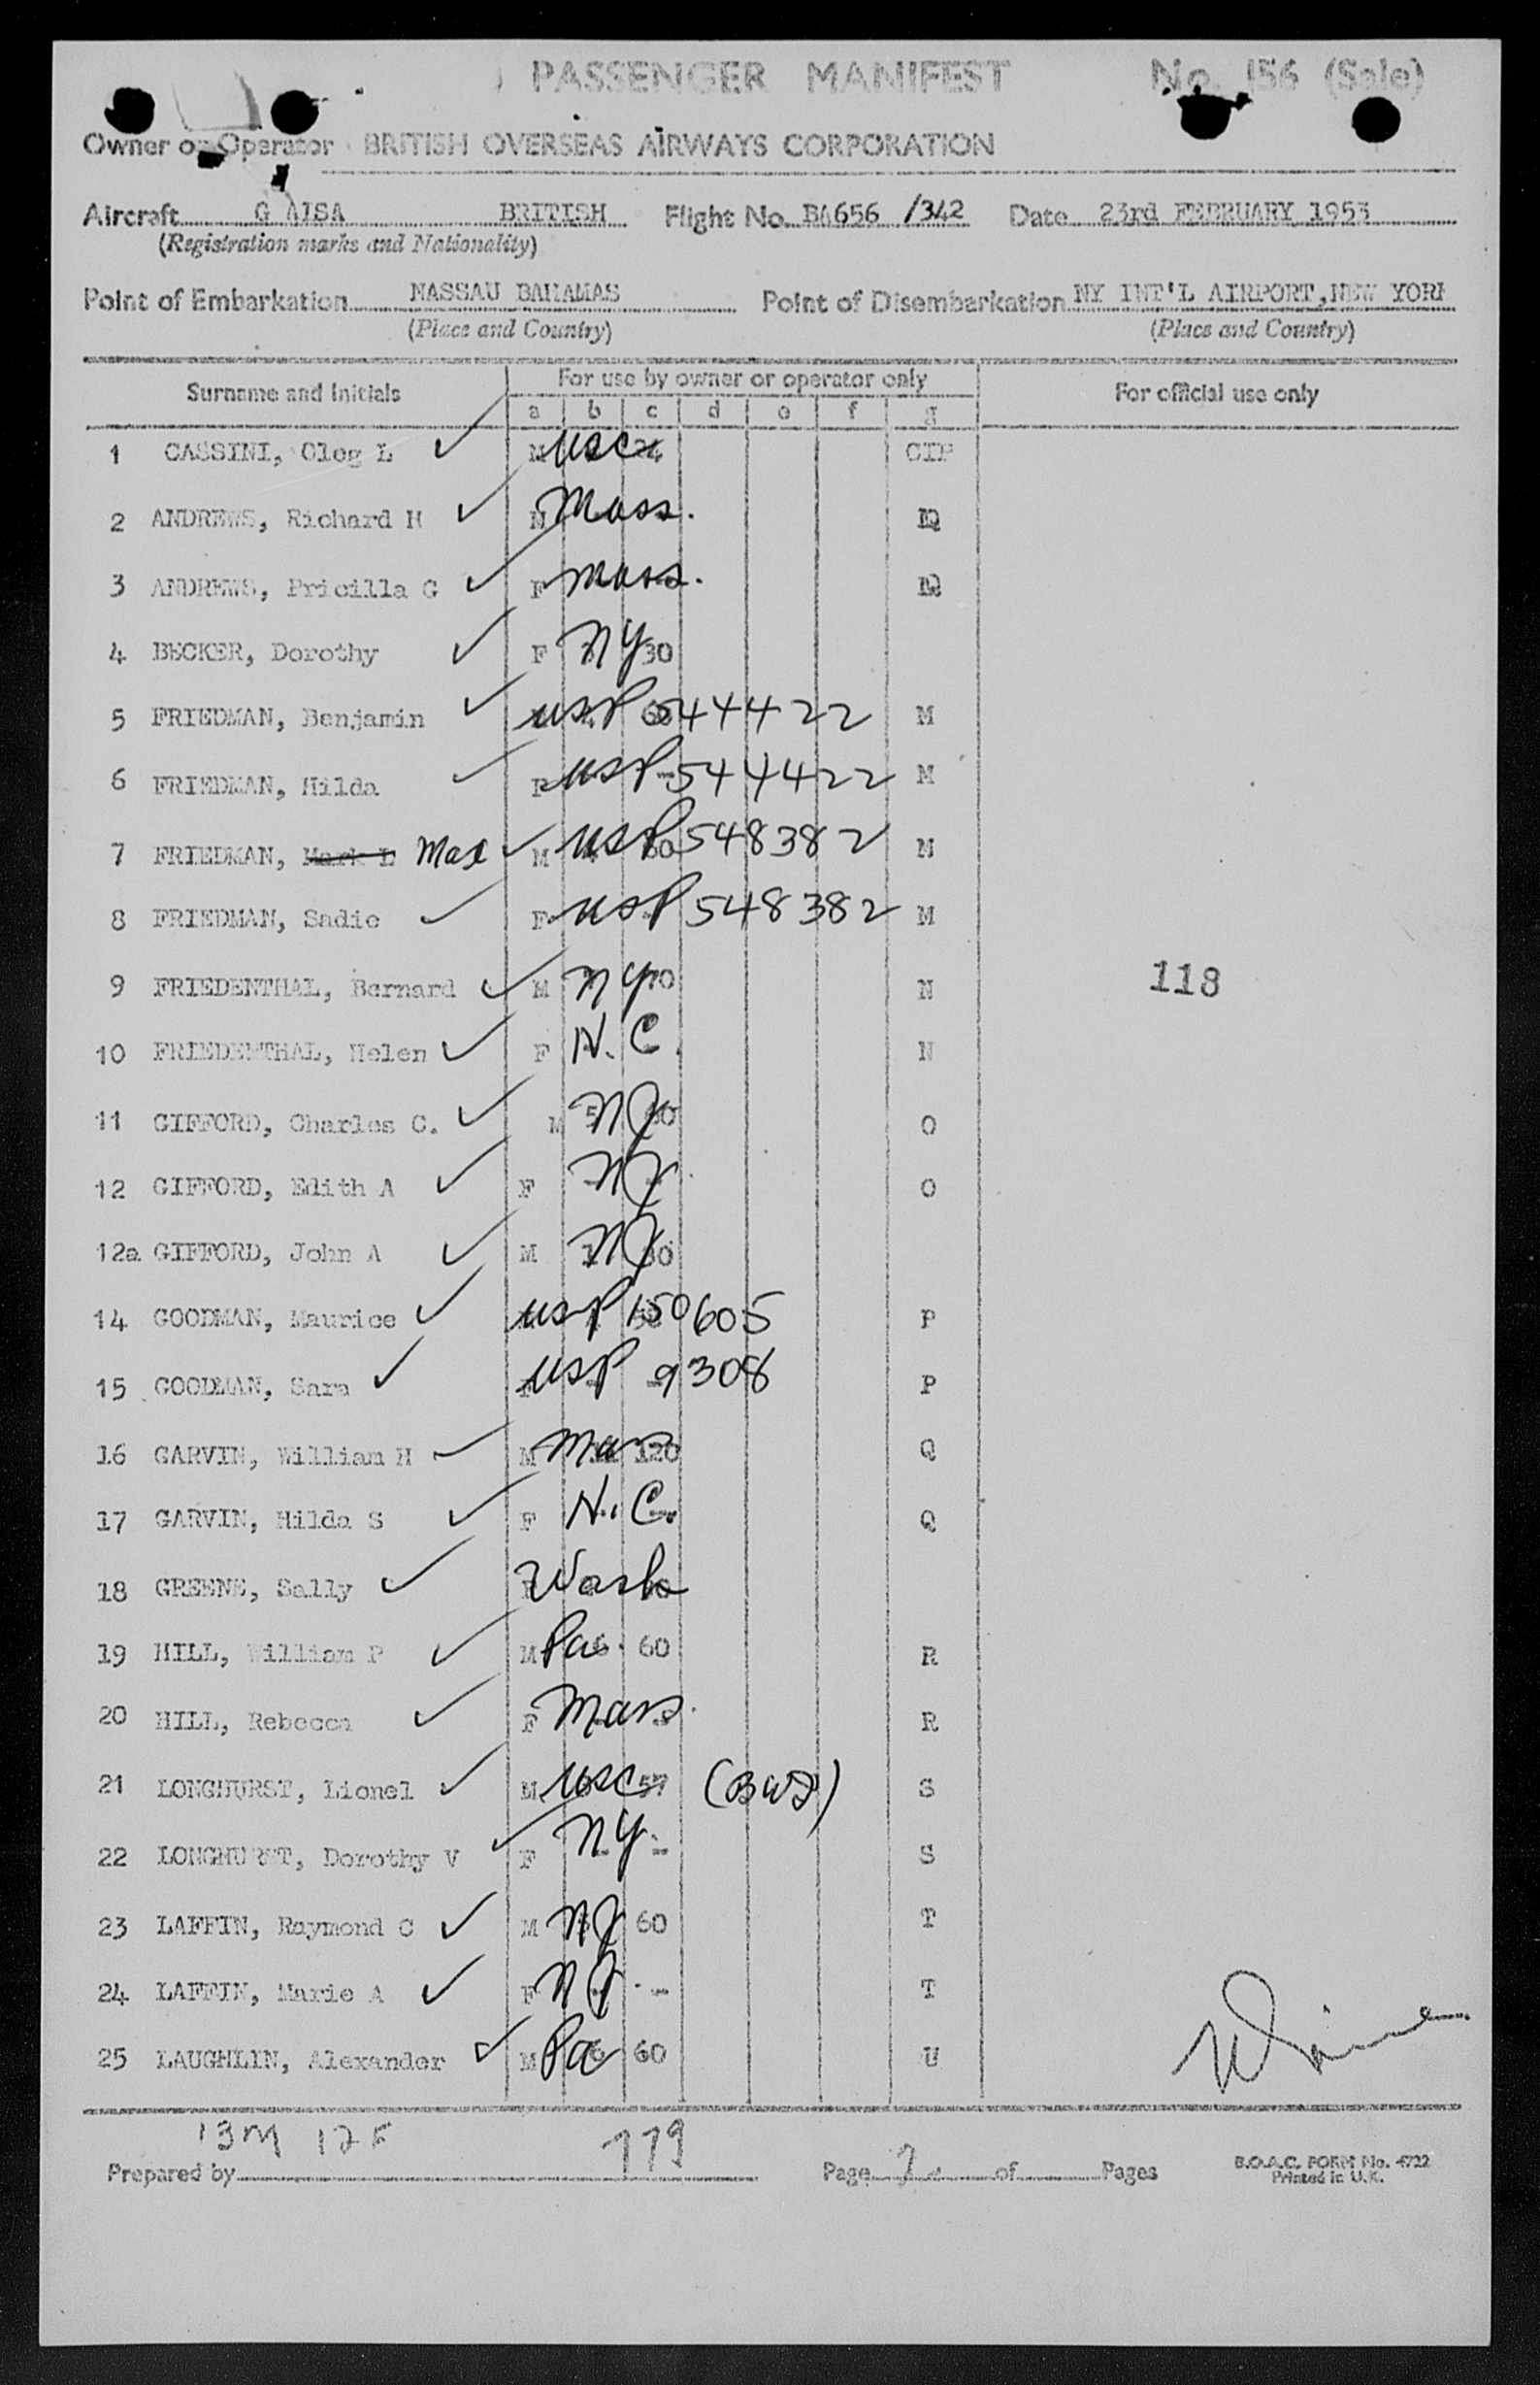 PASSENGER MANIFEST No. 156 (Sale)
Owner or Operator BRITISH OVERSEAS AIRWAYS CORPORATION
Aircraft G AISA BRITISH Flight No. BA656 /342 Date 23rd FEBRUARY 1953
(Registration marks and Nationality)
Point of Embarkation NASSAU BAHAMAS Point of Disembarkation NY INT'L AIRPORT, NEW YORK
(Place and Country) (Place and Country)
Surname and Initials For use by owner or operator only For official use only
a b c d e f g
1 CASSINI, Oleg L ✓ M USC CIP
2 ANDREWS, Richard H ✓ M Mass.
3 ANDREWS, Pricilla G ✓ F Mass.
4 BECKER, Dorothy ✓ F NY 30
5 FRIEDMAN, Benjamin ✓ USP 544422 M
6 FRIEDMAN, Hilda ✓ F USP 544422 M
7 FRIEDMAN, Mark L Max ✓ M USP 548382 M
8 FRIEDMAN, Sadie ✓ F USP 548382 M
9 FRIEDENTHAL, Bernard ✓ M NY N
118
10 FRIEDENTHAL, Helen ✓ F N.C. N
11 GIFFORD, Charles C. ✓ M NJ O
12 GIFFORD, Edith A ✓ F NJ O
12a GIFFORD, John A ✓ M NJ
14 GOODMAN, Maurice ✓ USP 150605 P
15 GOODMAN, Sara ✓ USP 9308 P
16 GARVIN, William H ✓ M Mass 120 Q
17 GARVIN, Hilda S ✓ F N.C. Q
18 GREENE, Sally ✓ Wash
19 HILL, William P ✓ M Pa. 60 R
20 HILL, Rebecca ✓ F Mass. R
21 LONGHURST, Lionel ✓ M USC 57 (BWI) S
22 LONGHURST, Dorothy V ✓ F NY. - S
23 LAFFIN, Raymond C ✓ M NJ 60 T
24 LAFFIN, Marie A ✓ F NJ - T
25 LAUGHLIN, Alexander ✓ M Pa 60 U
13M 12F 119
Prepared by Page 2 of Pages B.O.A.C. FORM No. 4722
Printed in U.K.